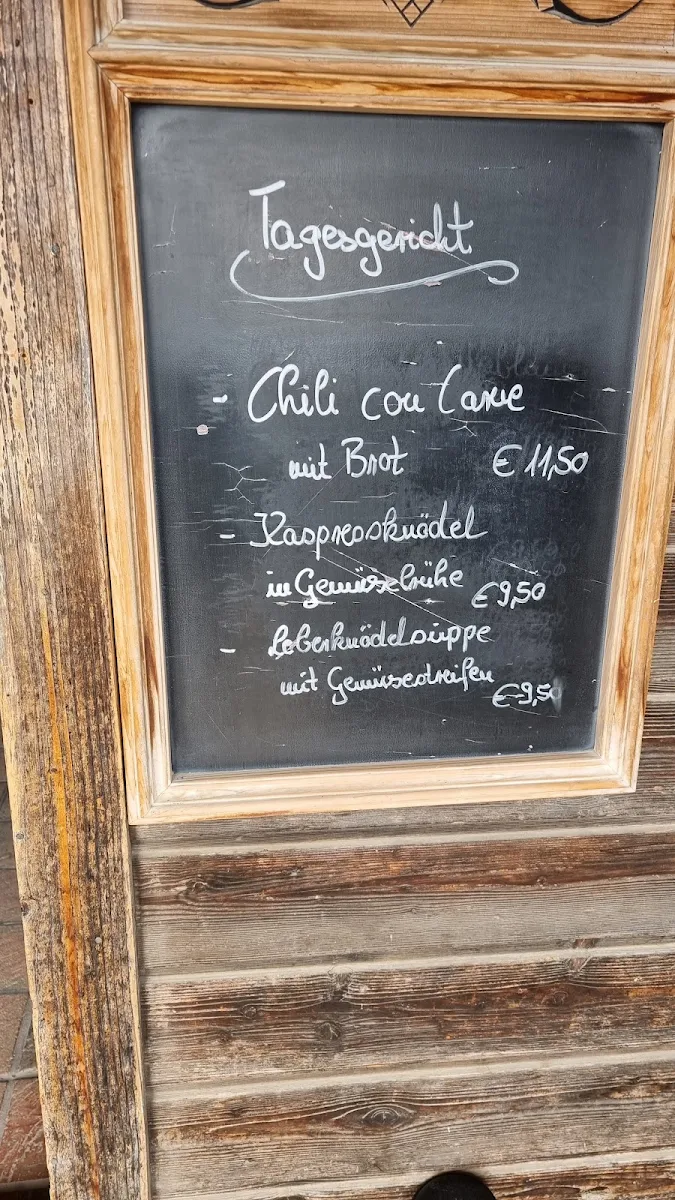 Tagesgericht
- Chili con Carne
mit Brot € 11,50
- Kaspressknödel
in Gemüsebrühe € 9,50
- Leberknödelsuppe
mit Gemüsestreifen € 9,50